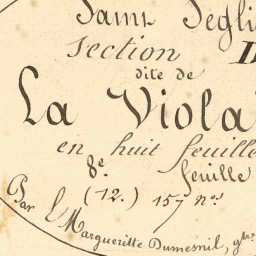 Saint Jegli
Section D
dite de
La Viola
en huit feuille
8e feuille
(12.) 157 nos
Par L Margueritte Dumesnil, gtre